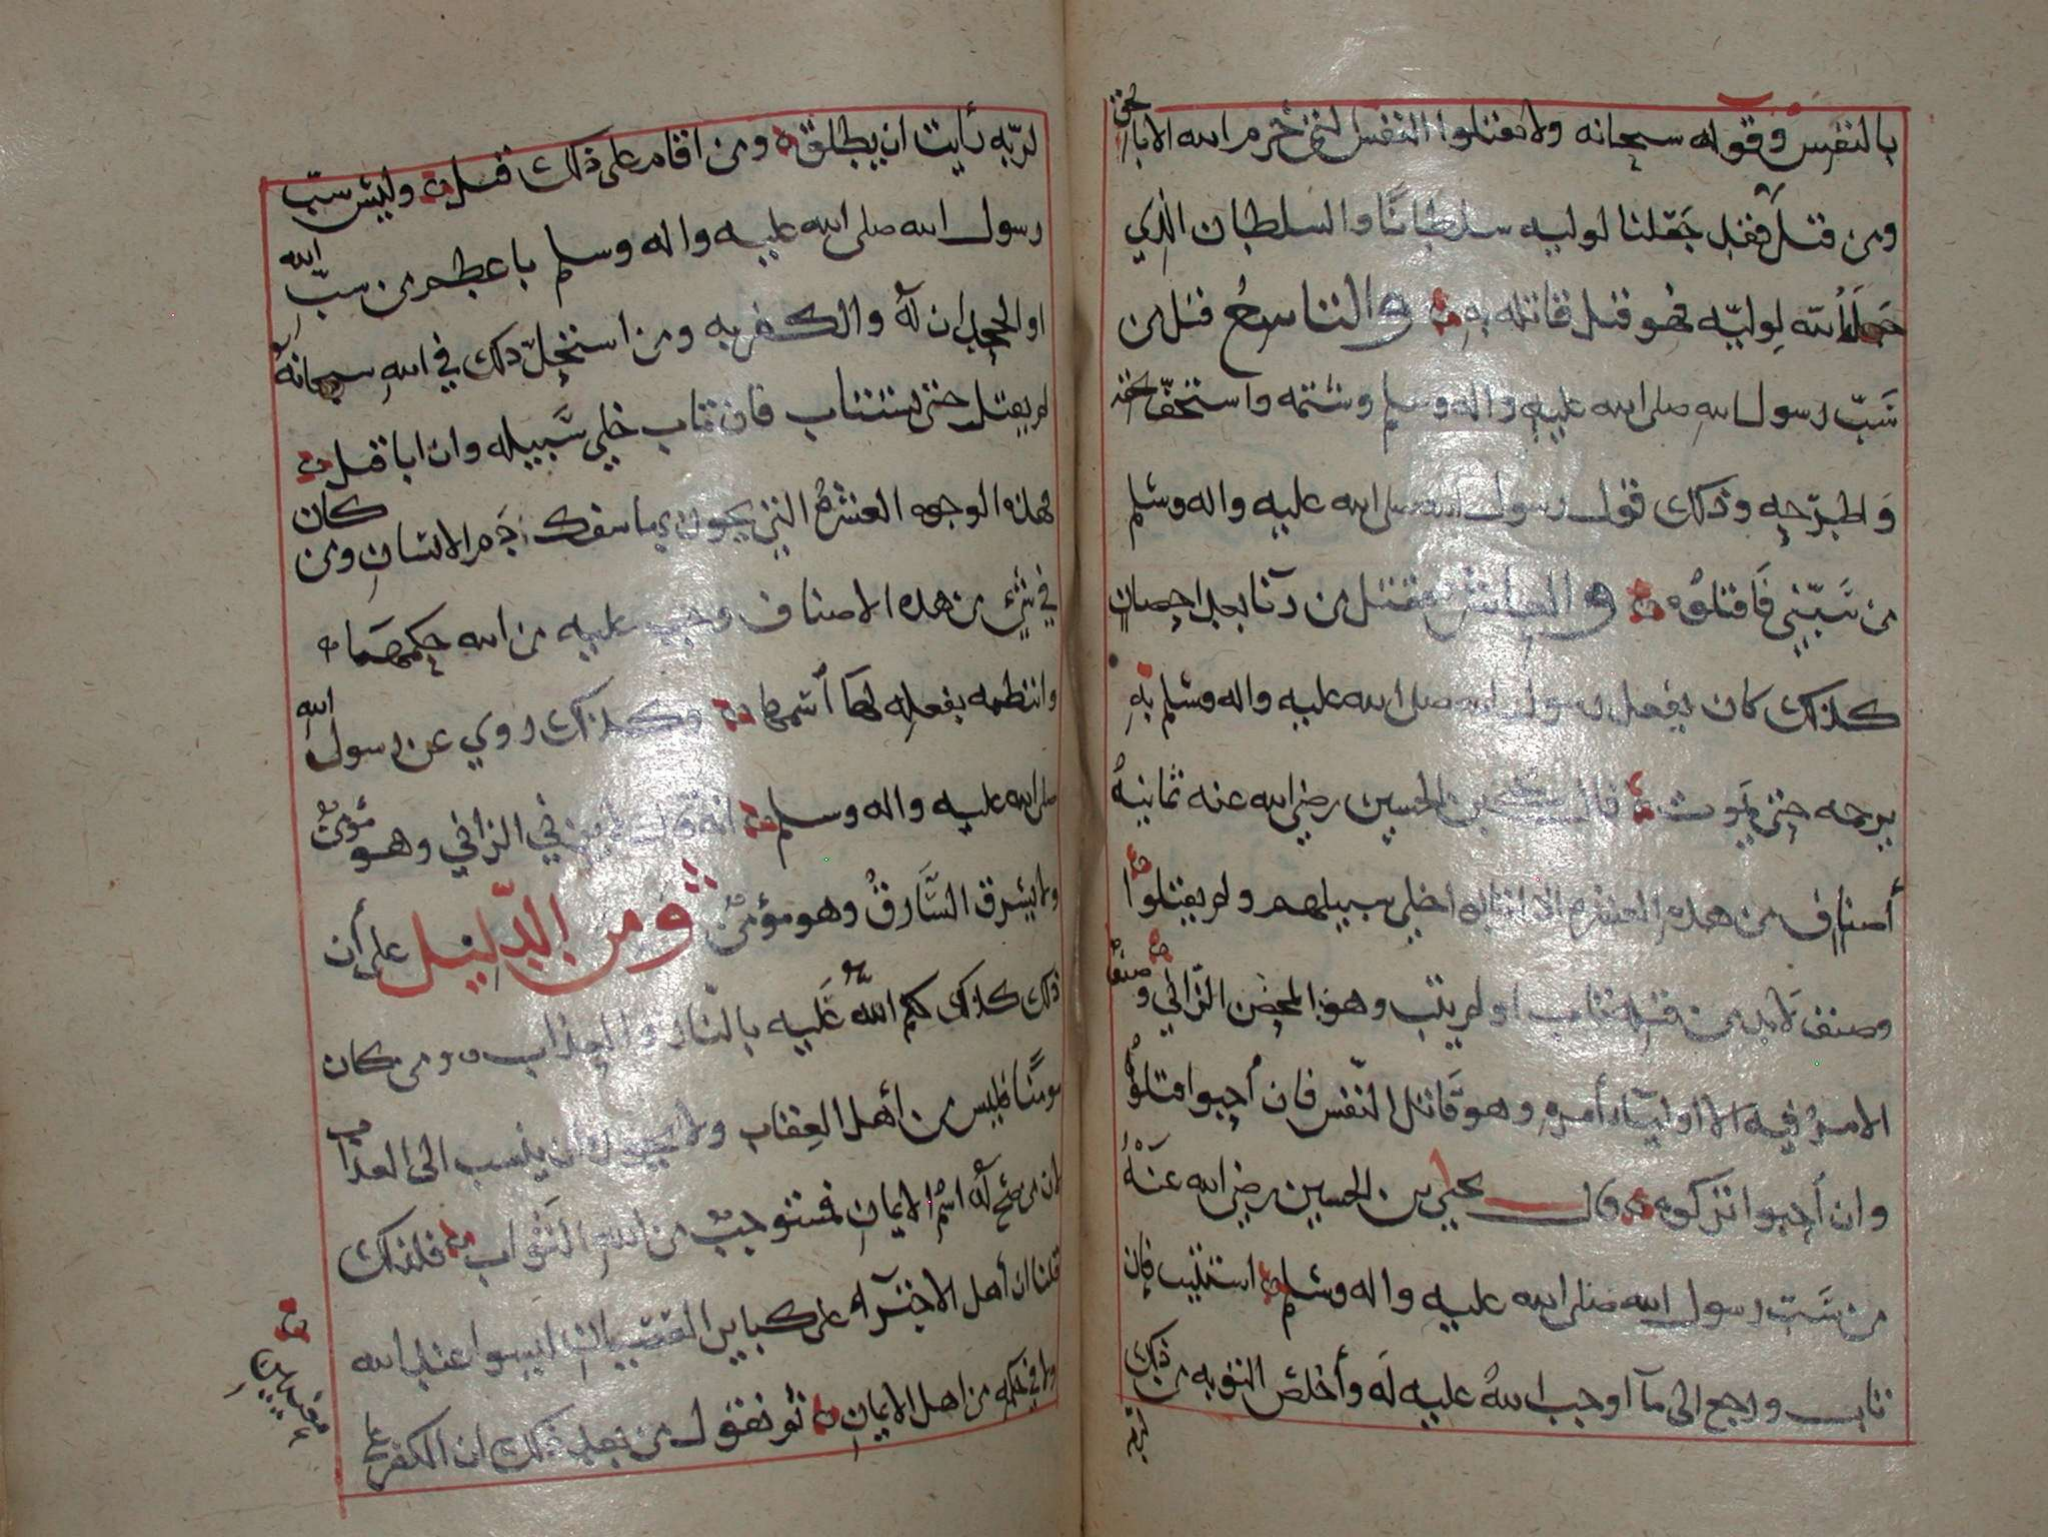 بالنفس وقوله سبحانه ولا تقتلوا النفس التي حرم الله الا بالحق
ومن قتل فقد جعلنا لوليه سلطانا والسلطان الذي
جعله الله لوليه فهو قتل قاتله به والتاسع قتل من
سب رسول الله صلى الله عليه واله وسلم وشتمه واستخف بحقه
واطرحه وذلك قول رسول الله صلى الله عليه واله وسلم
من سبني فاقتلوه والعاشر يقتل من زنا بعد احصان
كذلك كان يفعل رسول الله صلى الله عليه واله وسلم به
يرجمه حتى يموت قال يحيى بن الحسين رضي الله عنه ثمانية
أصناف من هذه العشرة اذا تابوا أخلي سبيلهم ولم يقتلوا
وصنف لا بد من قتله تاب او لم يتب وهو المحصن الزاني وصنف
الامر فيه الا اولياء أمره وهو قاتل النفس فان أحبوا قتلوه
وان أحبوا تركوه وقال يحيى بن الحسين رضي الله عنه
من سب رسول الله صلى الله عليه واله وسلم استتيب فان
تاب ورجع الى ما أوجب الله عليه له وأخلص التوبة من ذلك
لربه رأيت ان يطلق ومن اقام على ذلك قتل وليس سب
رسول الله صلى الله عليه واله وسلم باعظم من سب الله
او الجحدان له والكفر به ومن استحل ذلك في الله سبحانه
لم يقتل حتى يستتاب فان تاب خلي سبيله وان ابا قتل
فهذه الوجوه العشرة التي يجوز بها سفك دم الانسان ومن كان
في شيء من هذه الاصناف وجب عليه من الله حكمها
وانتظمه بفعله لها أسمها وكذلك روي عن رسول الله
صلى الله عليه واله وسلم انه قال لا يزني الزاني وهو مؤمن
ولا يسرق السارق وهو مؤمن ومن الدليل على أن
ذلك كذلك حكم الله عليه بالنار والعذاب ومن كان
مومنا فليس من أهل العقاب ولا يجوز ان ينسب الى العذاب
لان من صح له اسم الايمان فمستوجب من الله الثواب فلذلك
قلنا ان أهل الاجتراء على كباير العصيان ليسوا عند الله
ولا في حكمه من اهل الايمان ثم نقول من بعد ذلك ان الكفر على